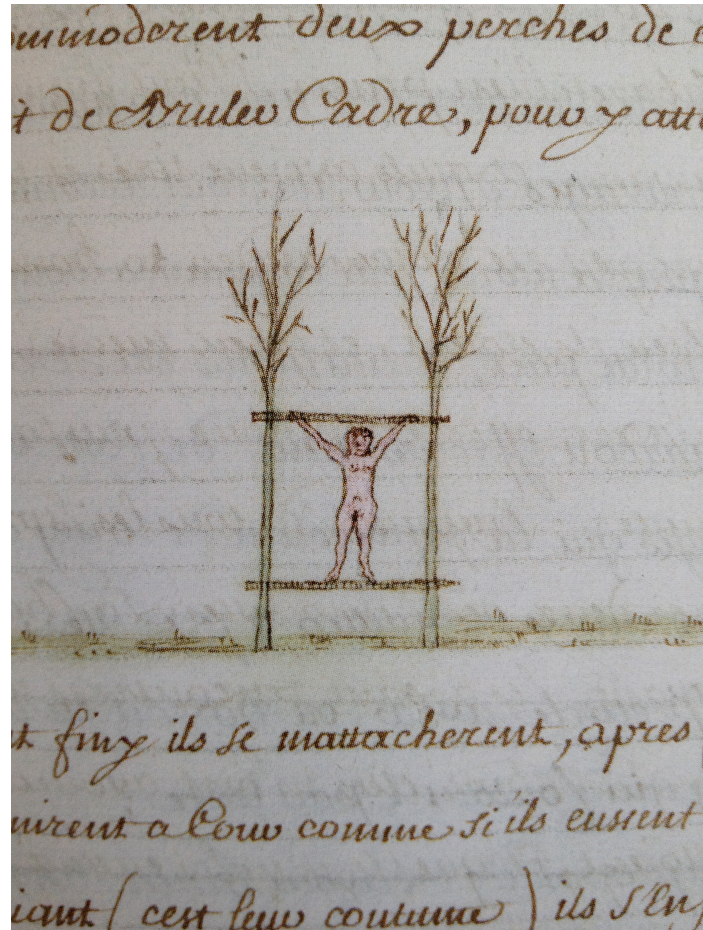 ommoderent deux perches de
t de Bruler Cadre, pour y atta
t finy ils se mattacherent, apres
mirent a Cour comme si ils eussent
iant ( cest leur coutume ) ils s'En